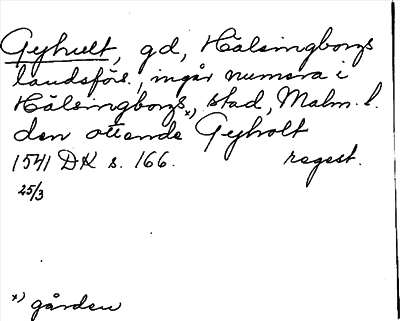 Gejhult, gd, Hälsingborgs
landsförs., ingår numera i
Hälsingborgs x) stad, Malm. l.
den attende Gejholt
1541 DK s. 166. regest.
25/3
x) gården